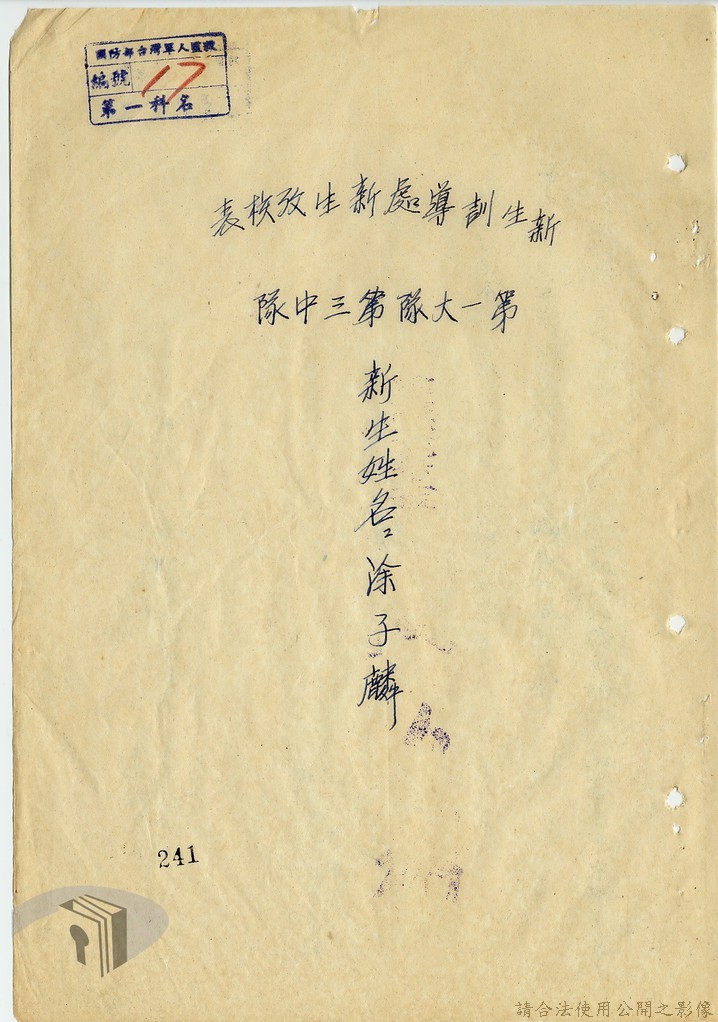 國防部台灣軍人監獄
編號 17
第一科名
新生訓導處新生攷核表
第一大隊第三中隊
新生姓名:涂子麟
241
請合法使用公開之影像